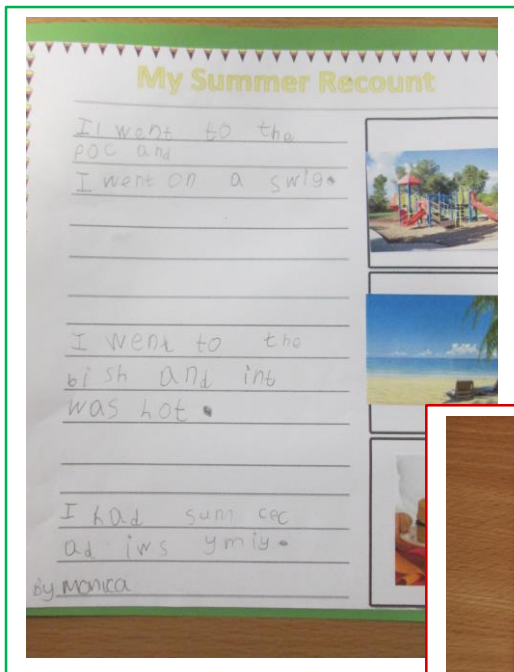 My Summer Recount
I1 went to the
poc and
I went on a swig.
I went to the
bish and int
was hot.
I had sum cec
ad iws ymiy.
by Monica